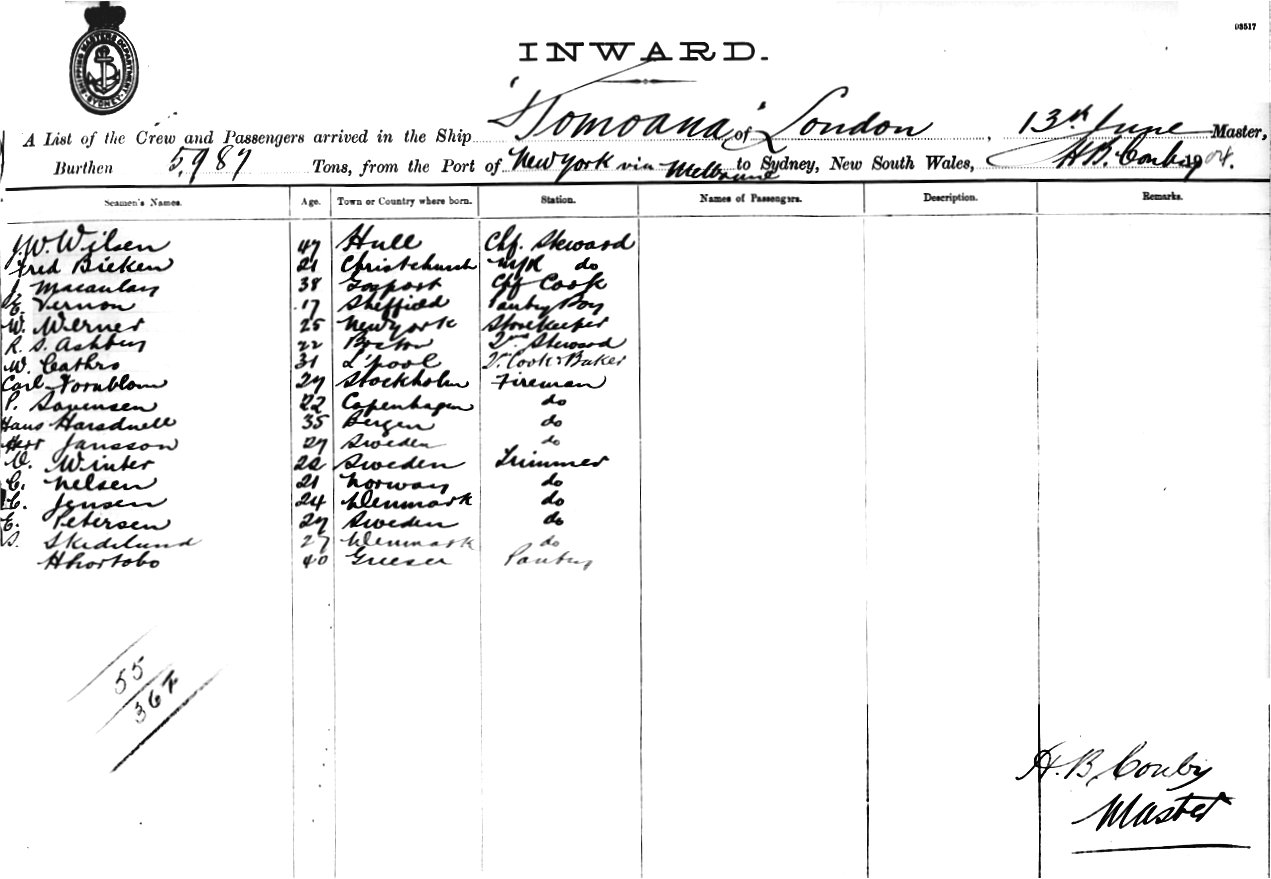 SHIPPING MASTERS DEPARTMENT SYDNEY
03517
INWARD.
A List of the Crew and Passengers arrived in the Ship "Tomoana" of London, 13th June Master,
Burthen 5987 Tons, from the Port of New York via Melbourne to Sydney, New South Wales, H.B. Conby 1904.
Seamen's Names. Age. Town or Country where born. Station. Names of Passengers. Description. Remarks.
J.W. Wilsen 47 Hull Chf. Steward
Fred Bicken 21 Christchurch do
J Macaulay 38 Gosport Chf Cook
E. Vernon 17 Sheffield Pantry Boy
W. Werner 25 New York Storekeeper
R. S. Ashbey 22 Boston Steward
W. Cathro 31 L'pool Cook & Baker
Carl Tornblom 27 Stockholm Fireman
P. Sorensen 22 Copenhagen do
Hans 35 Bergen do
Jansson 27 Sweden do
Winter 22 Sweden Trimmer
C. Nelsen 21 Norway do
C. Jensen 24 Denmark do
E. Petersen 27 Sweden do
S. 27 Denmark do
40 Pantry
55
367
H. B. Conby
Master